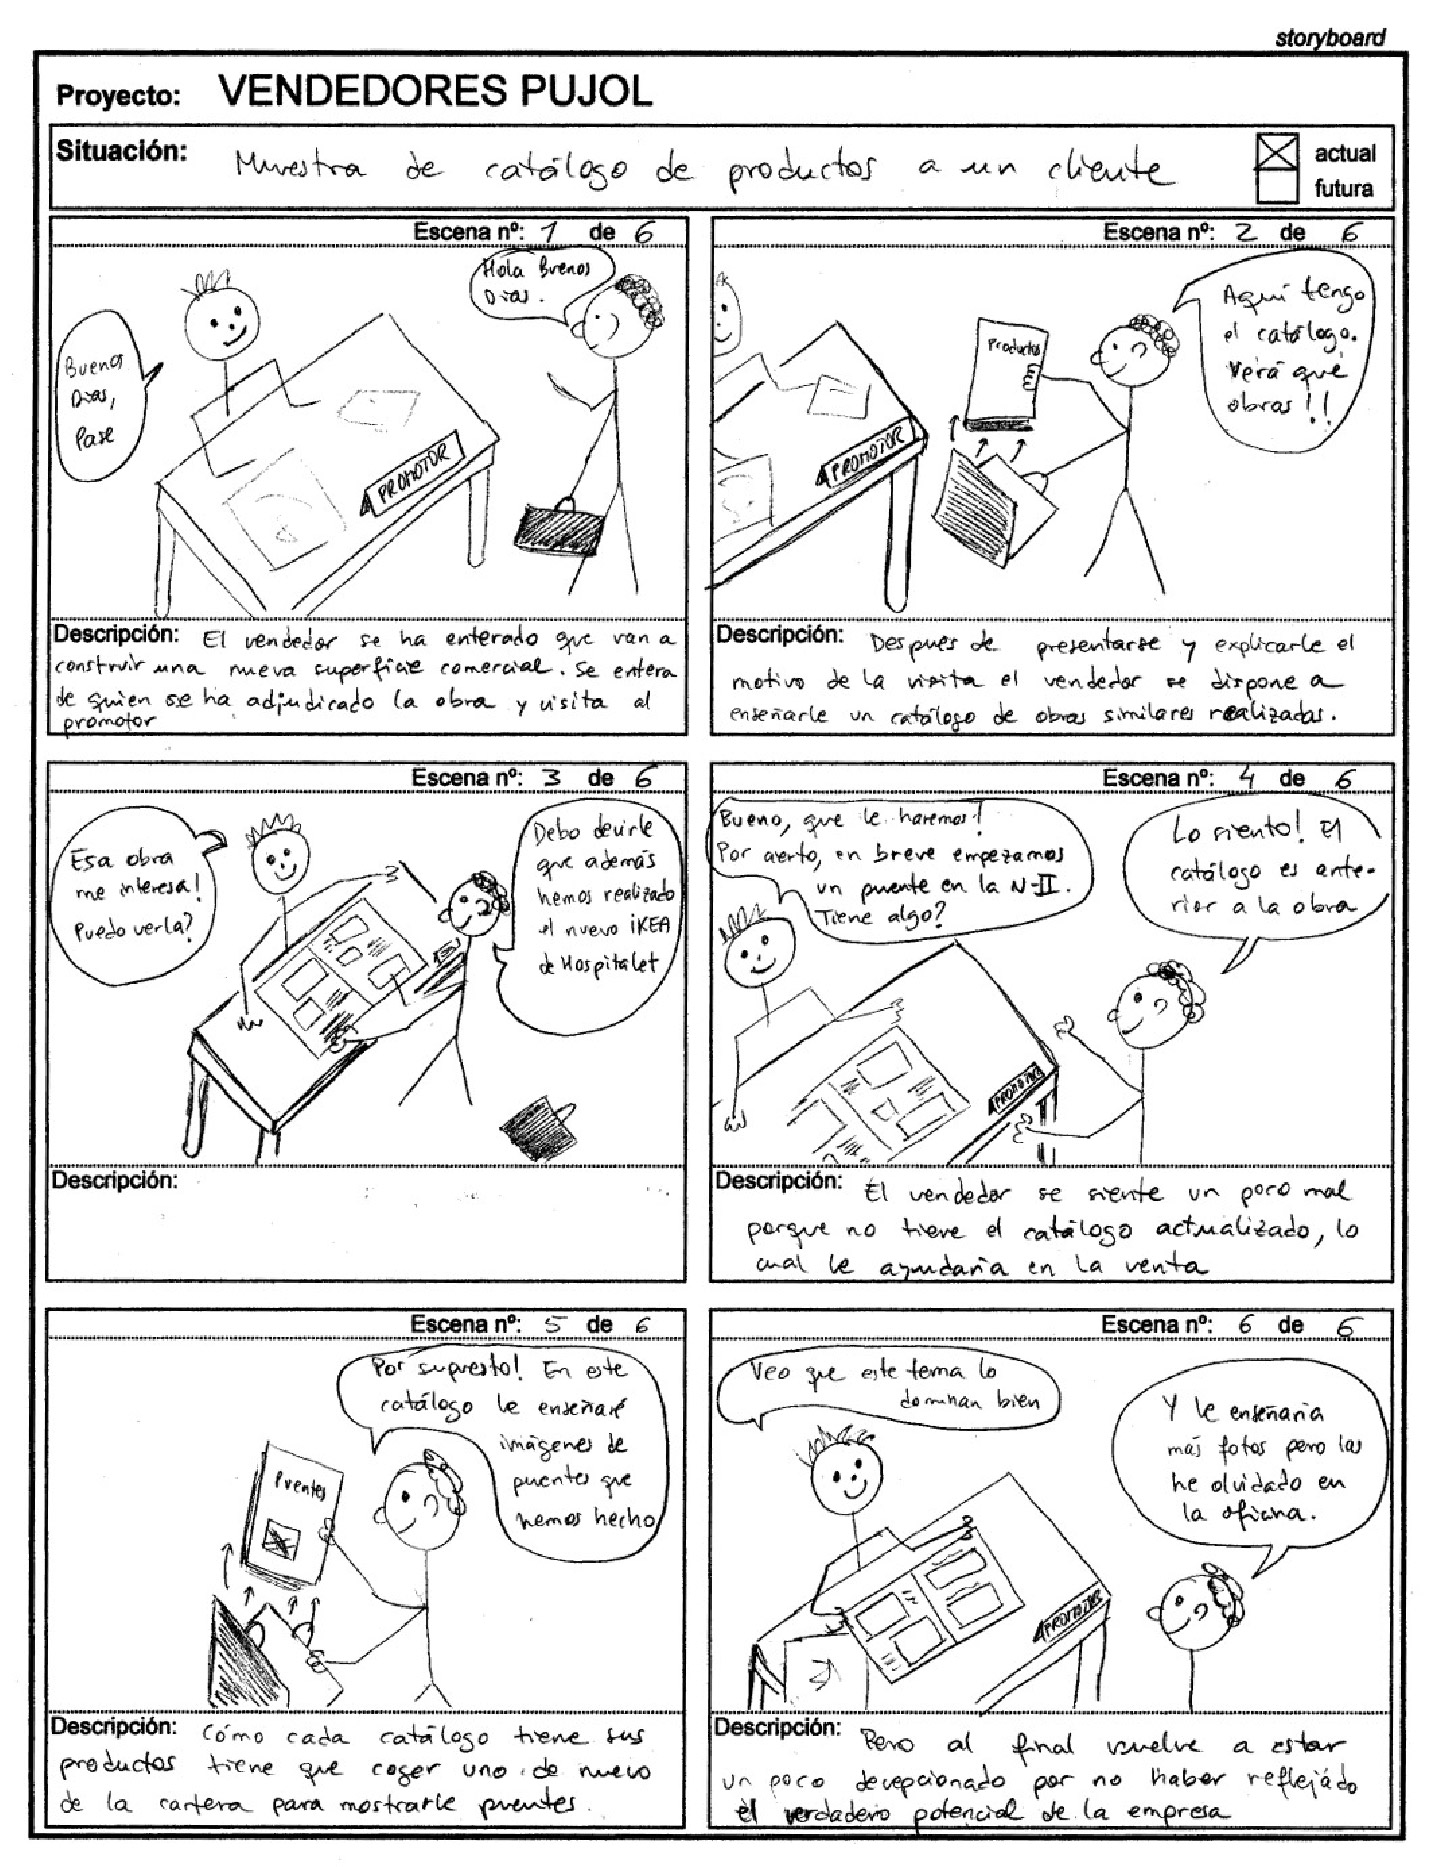 storyboard
Proyecto: VENDEDORES PUJOL
Situación: Muestra de catálogo de productos a un cliente
actual
futura
Escena nº: 1 de 6
Hola Buenos
Dias.
Buenos
Dias,
Pase
PROMOTOR
Descripción: El vendedor se ha enterado que van a
construir una nueva superficie comercial. Se entera
de quien se ha adjudicado la obra y visita al
promotor
Escena nº: 2 de 6
Aquí tengo
el catálogo.
Verá qué
obras!!
Productos
PROMOTOR
Descripción: Despues de presentarse y explicarle el
motivo de la visita el vendedor se dispone a
enseñarle un catálogo de obras similares realizadas.
Escena nº: 3 de 6
Esa obra
me interesa!
Puedo verla?
Debo decirle
que además
hemos realizado
el nuevo IKEA
de Hospitalet
Descripción:
Escena nº: 4 de 6
Bueno, que le haremos!
Por cierto, en breve empezamos
un puente en la N-II.
Tiene algo?
Lo siento! El
catálogo es ante-
rior a la obra
PROMOTOR
Descripción: El vendedor se siente un poco mal
porque no tiene el catálogo actualizado, lo
cual le ayudaria en la venta
Escena nº: 5 de 6
Por supuesto! En este
catálogo le enseñaré
imágenes de
puentes que
hemos hecho
Puentes
Descripción: Cómo cada catálogo tiene sus
productos tiene que coger uno de nuevo
de la cartera para mostrarle puentes.
Escena nº: 6 de 6
Veo que este tema lo
dominan bien
Y le enseñaria
más fotos pero las
he olvidado en
la oficina.
PROMOTOR
Descripción: Pero al final vuelve a estar
un poco decepcionado por no haber reflejádo
el verdadero potencial de la empresa